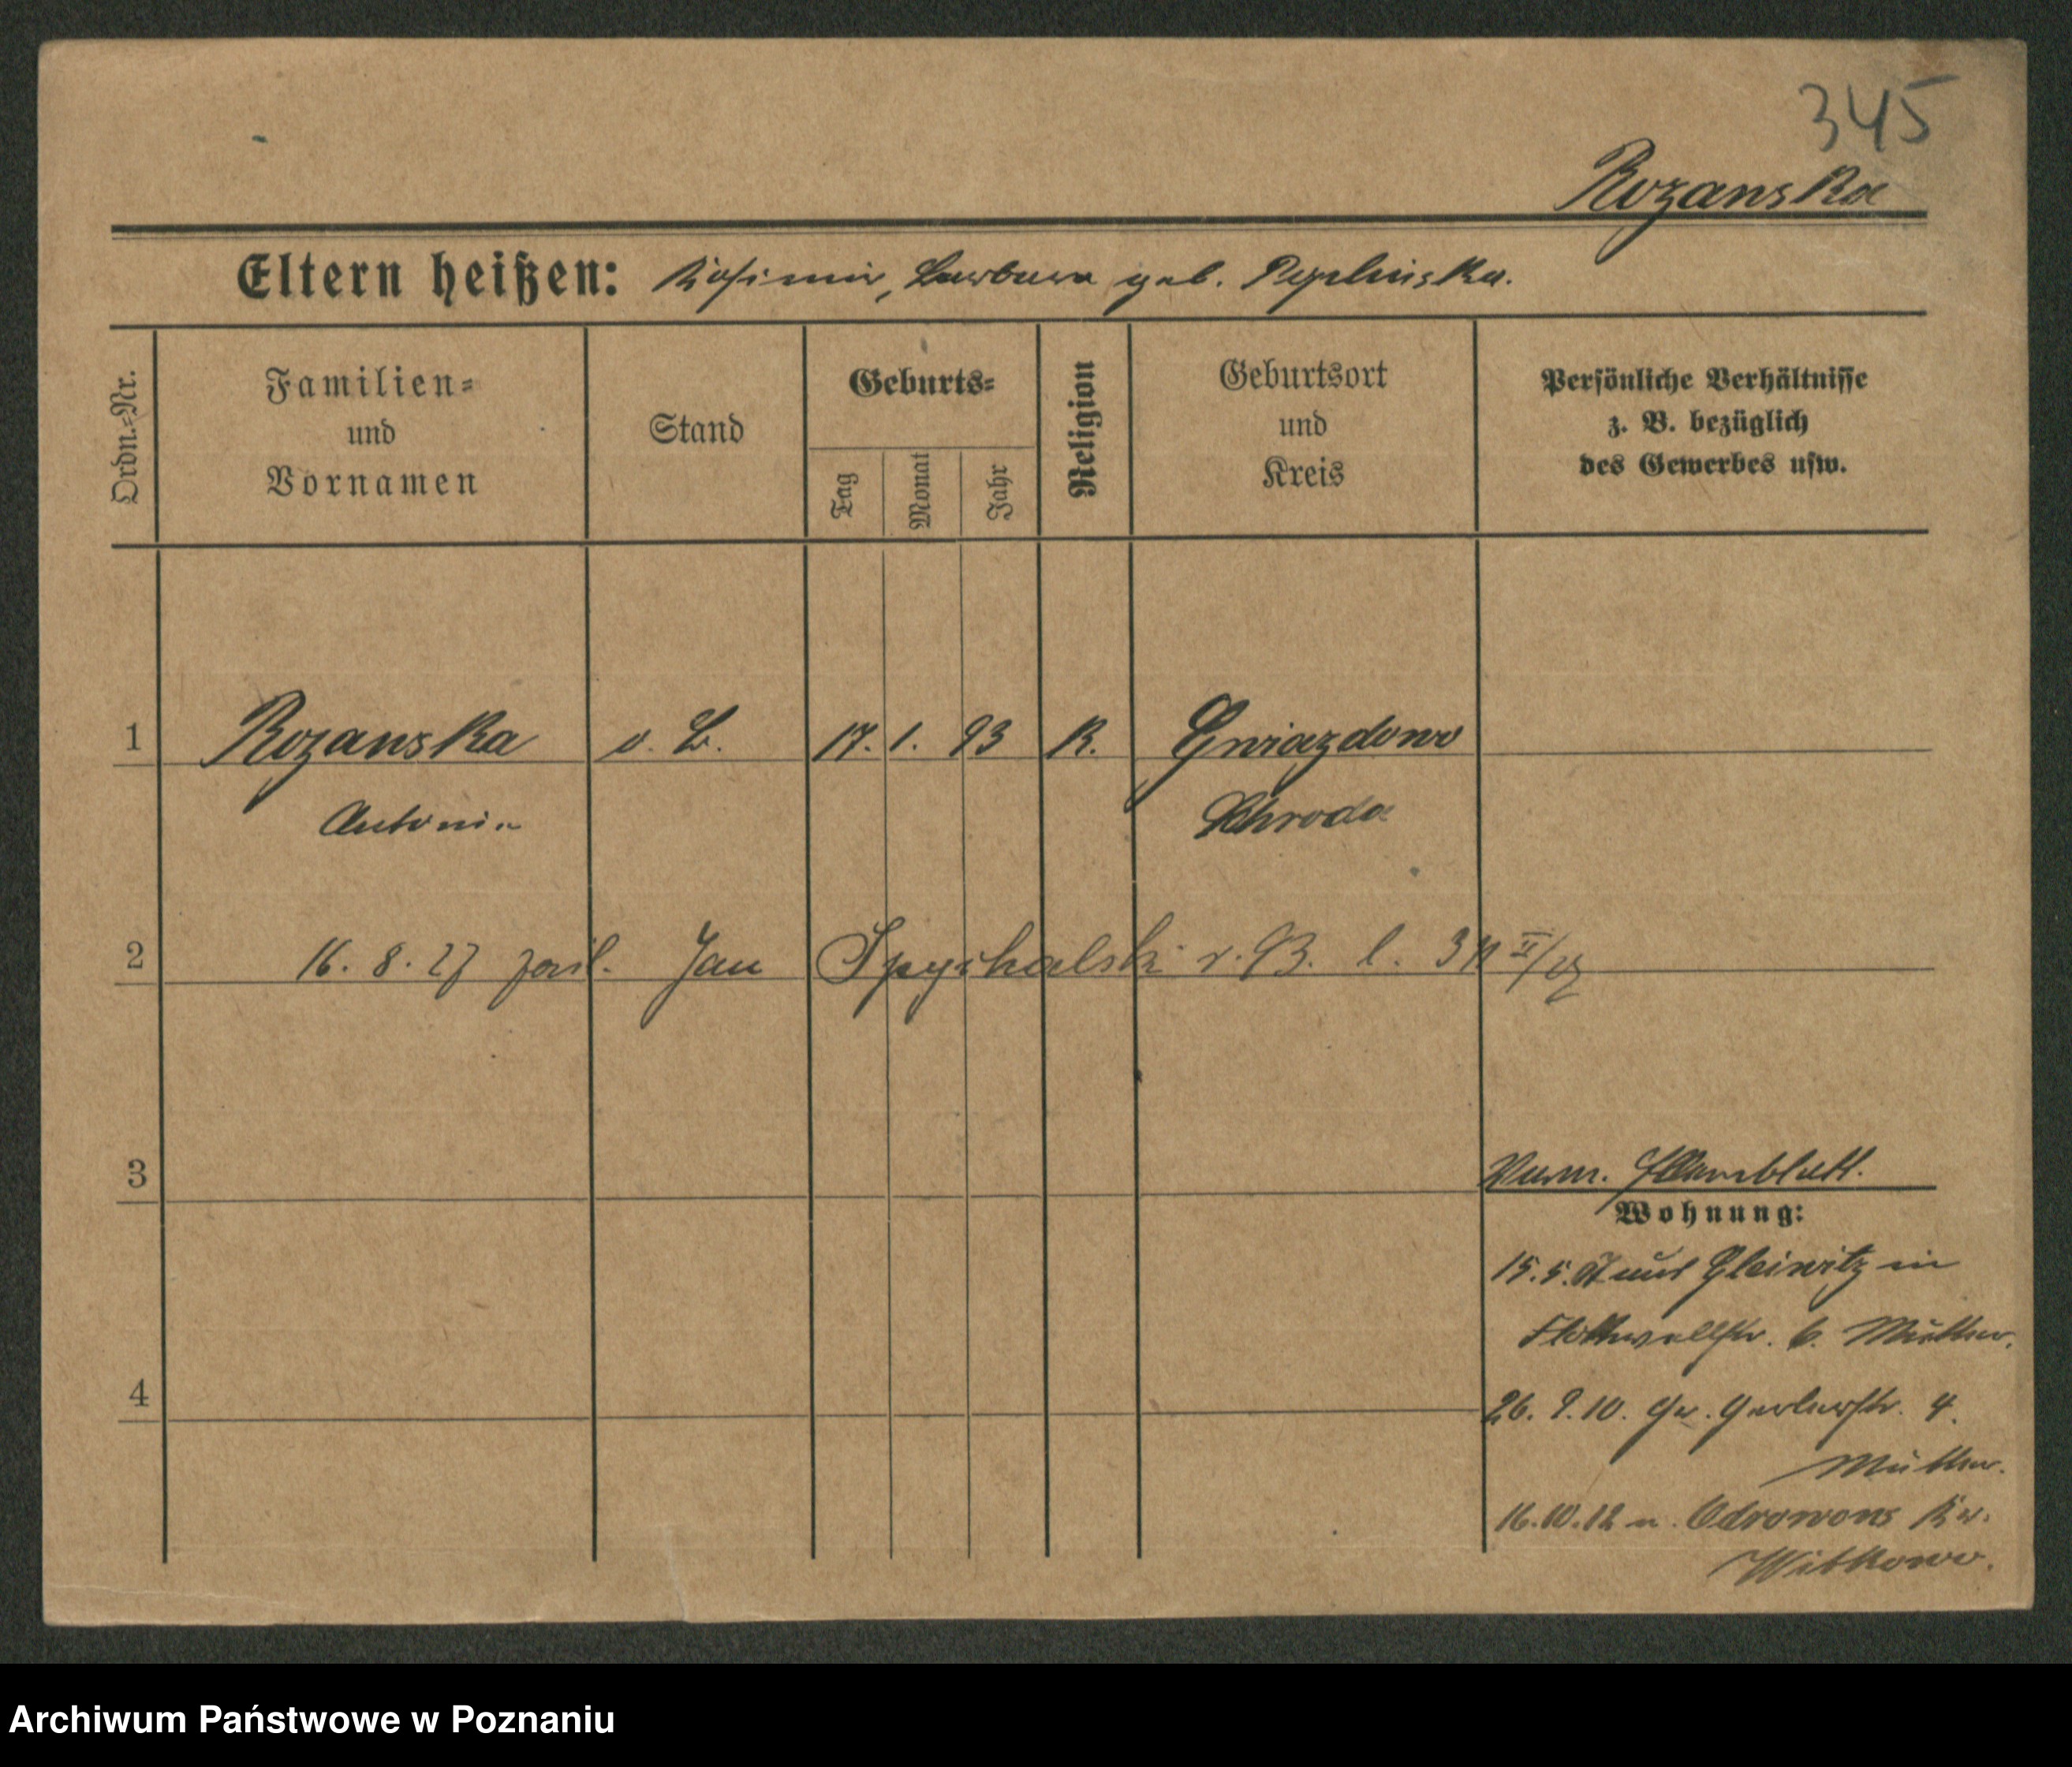 345
Rozanska
Eltern heißen: Kasimir, Barbara geb. Peplinska.
Ordn.=Nr.
Familien= und Vornamen
Stand
Geburts=
Tag
Monat
Jahr
Religion
Geburtsort und Kreis
Persönliche Verhältnisse
z. B. bezüglich
des Gewerbes usw.
1 Rozanska o. B. 17. 1. 93 K. Gwiazdowo
Antonie Schroda
2 16. 8. 27 Jan Spychalski r. 93. l.
3
Wohnung:
15. 5. 07 aus Gleiwitz in
Flottwellstr. 6. Mutter.
4
26. 9. 10. Gr. Gerberstr. 4.
Mutter.
16. 10. 12 n. Odrowons Kr.
Witkowo.
Archiwum Państwowe w Poznaniu